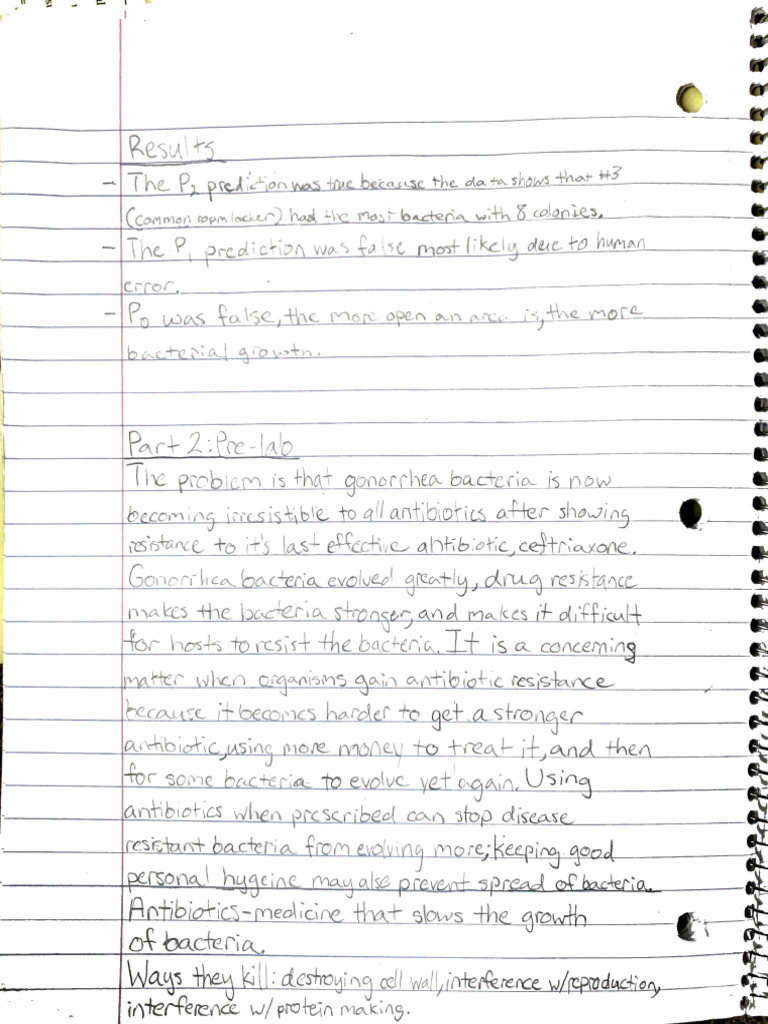 Results
- The P₂ prediction was true because the data shows that #3
(common room locker) had the most bacteria with 8 colonies.
- The P₁ prediction was false most likely due to human
error.
- P₀ was false, the more open an area is, the more
bacterial growth.
Part 2: Pre-lab
The problem is that gonorrhea bacteria is now
becoming irresistible to all antibiotics after showing
resistance to it's last effective antibiotic, ceftriaxone.
Gonorrhea bacteria evolved greatly, drug resistance
makes the bacteria stronger, and makes it difficult
for hosts to resist the bacteria. It is a concerning
matter when organisms gain antibiotic resistance
because it becomes harder to get a stronger
antibiotic, using more money to treat it, and then
for some bacteria to evolve yet again. Using
antibiotics when prescribed can stop disease
resistant bacteria from evolving more; keeping good
personal hygeine may also prevent spread of bacteria.
Antibiotics - medicine that slows the growth
of bacteria.
Ways they kill: destroying cell wall, interference w/reproduction,
interference w/ protein making.